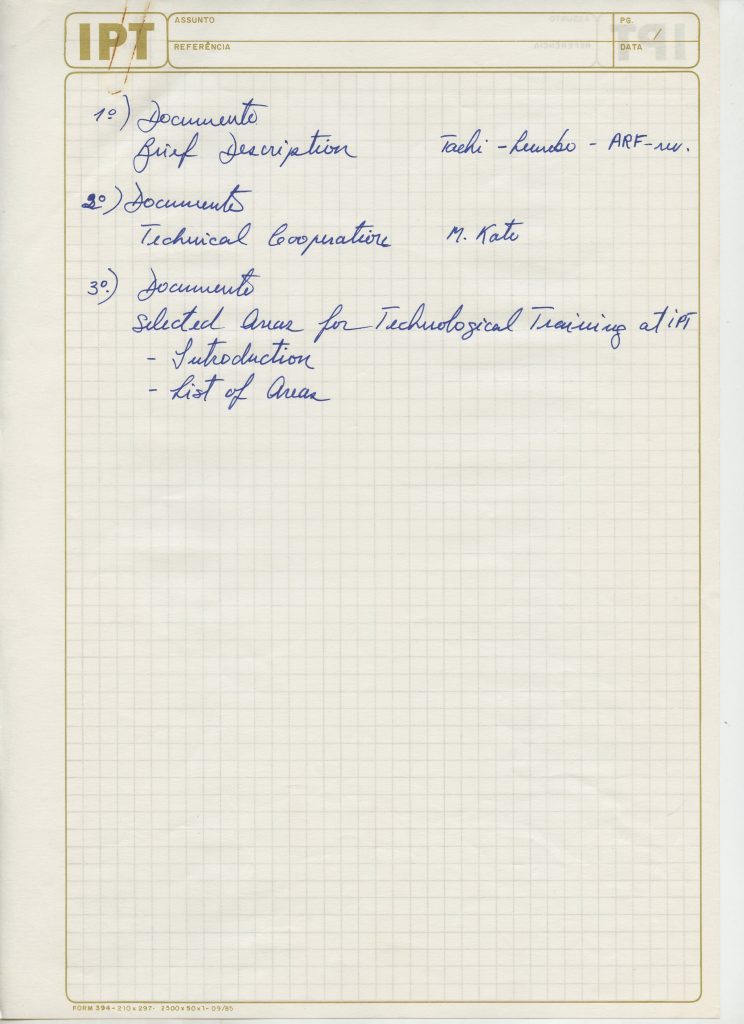 IPT
ASSUNTO
REFERÊNCIA
PG.
DATA /
1º) Documento
Brief Description Tachi - - ARF-rev.
2º) Documento
Technical Cooperation M. Kato
3º.) Documento
Selected Areas for Technological Training at IPT
- Introduction
- List of Areas
FORM 394 - 210 x 297 - 2500 x 50 x 1 - 09/85